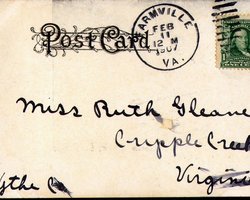 Post Card
FARMVILLE
FEB
11
12 M
1907
VA.
Miss Ruth Gleave
Cripple Creek
Virginia